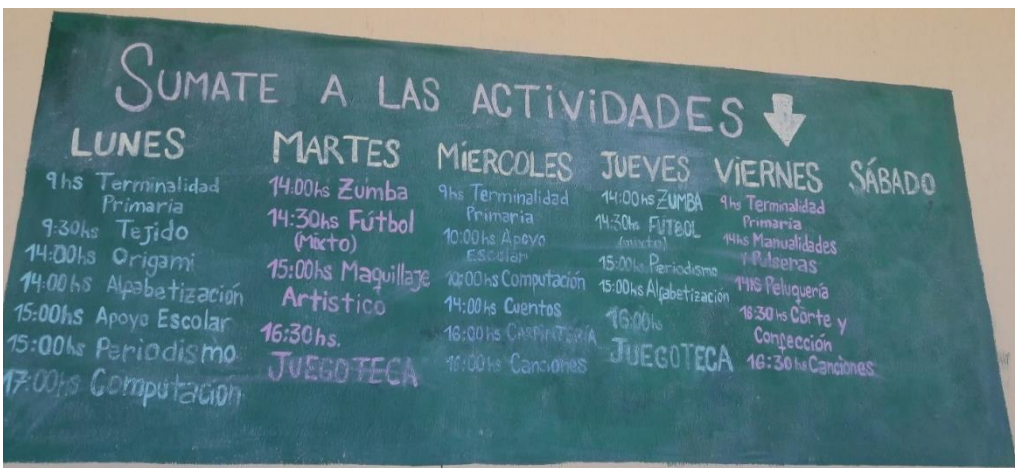 SUMATE A LAS ACTIVIDADES
LUNES
9hs Terminalidad
Primaria
9:30hs Tejido
14:00hs Origami
14:00hs Alfabetización
15:00hs Apoyo Escolar
15:00hs Periodismo
17:00hs Computación
MARTES
14:00hs Zumba
14:30hs Fútbol
(Mixto)
15:00hs Maquillaje
Artístico
16:30hs.
JUEGOTECA
MIERCOLES
9hs Terminalidad
Primaria
10:00hs Apoyo
ESCOLAR
10:00hs Computación
14:00hs Cuentos
16:00hs CARPINTERÍA
16:00hs Canciones
JUEVES
14:00hs ZUMBA
14:30hs FUTBOL
(mixto)
15:00hs Periodismo
15:00hs Alfabetización
16:00hs
JUEGOTECA
VIERNES
9hs Terminalidad
Primaria
14hs Manualidades
y Pulseras
14hs Peluquería
16:30hs Corte y
Confección
16:30hs Canciones
SÁBADO